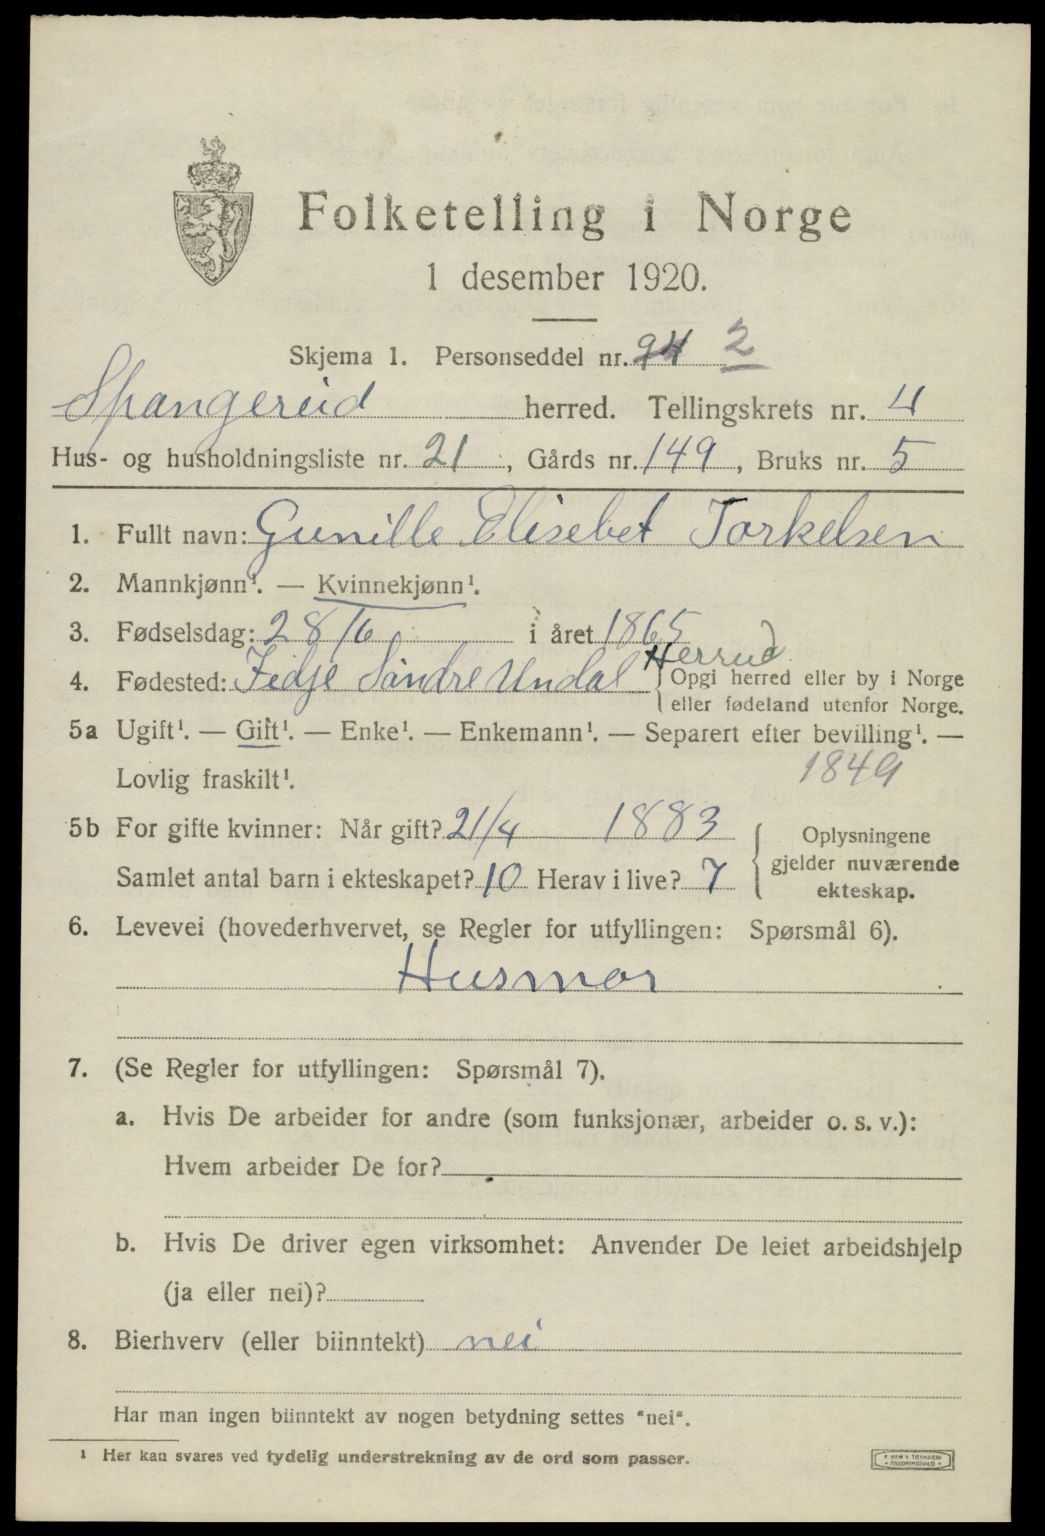 Folketelling i Norge
1 desember 1920.
Skjema 1. Personseddel nr. 94 2
Spangereid herred. Tellingskrets nr. 4
Hus- og husholdningsliste nr. 21, Gårds nr. 149, Bruks nr. 5
1. Fullt navn: Gunille Elisebet Torkelsen
2. Mannkjønn¹. — Kvinnekjønn¹.
3. Fødselsdag: 28/6 i året 1865
4. Fødested: Fidje Söndre Undal Herred { Opgi herred eller by i Norge
eller fødeland utenfor Norge.
5a Ugift¹. — Gift¹. — Enke¹. — Enkemann¹. — Separert efter bevilling¹. —
Lovlig fraskilt¹. 1849
5b For gifte kvinner: Når gift? 21/4 1883 { Oplysningene
gjelder nuværende
Samlet antal barn i ekteskapet? 10 Herav i live? 7
ekteskap.
6. Levevei (hovederhvervet, se Regler for utfyllingen: Spørsmål 6).
Husmor
7. (Se Regler for utfyllingen: Spørsmål 7).
a. Hvis De arbeider for andre (som funksjonær, arbeider o. s. v.):
Hvem arbeider De for?
b. Hvis De driver egen virksomhet: Anvender De leiet arbeidshjelp
(ja eller nei)?
8. Bierhverv (eller biinntekt) nei
Har man ingen biinntekt av nogen betydning settes "nei".
¹ Her kan svares ved tydelig understrekning av de ord som passer.